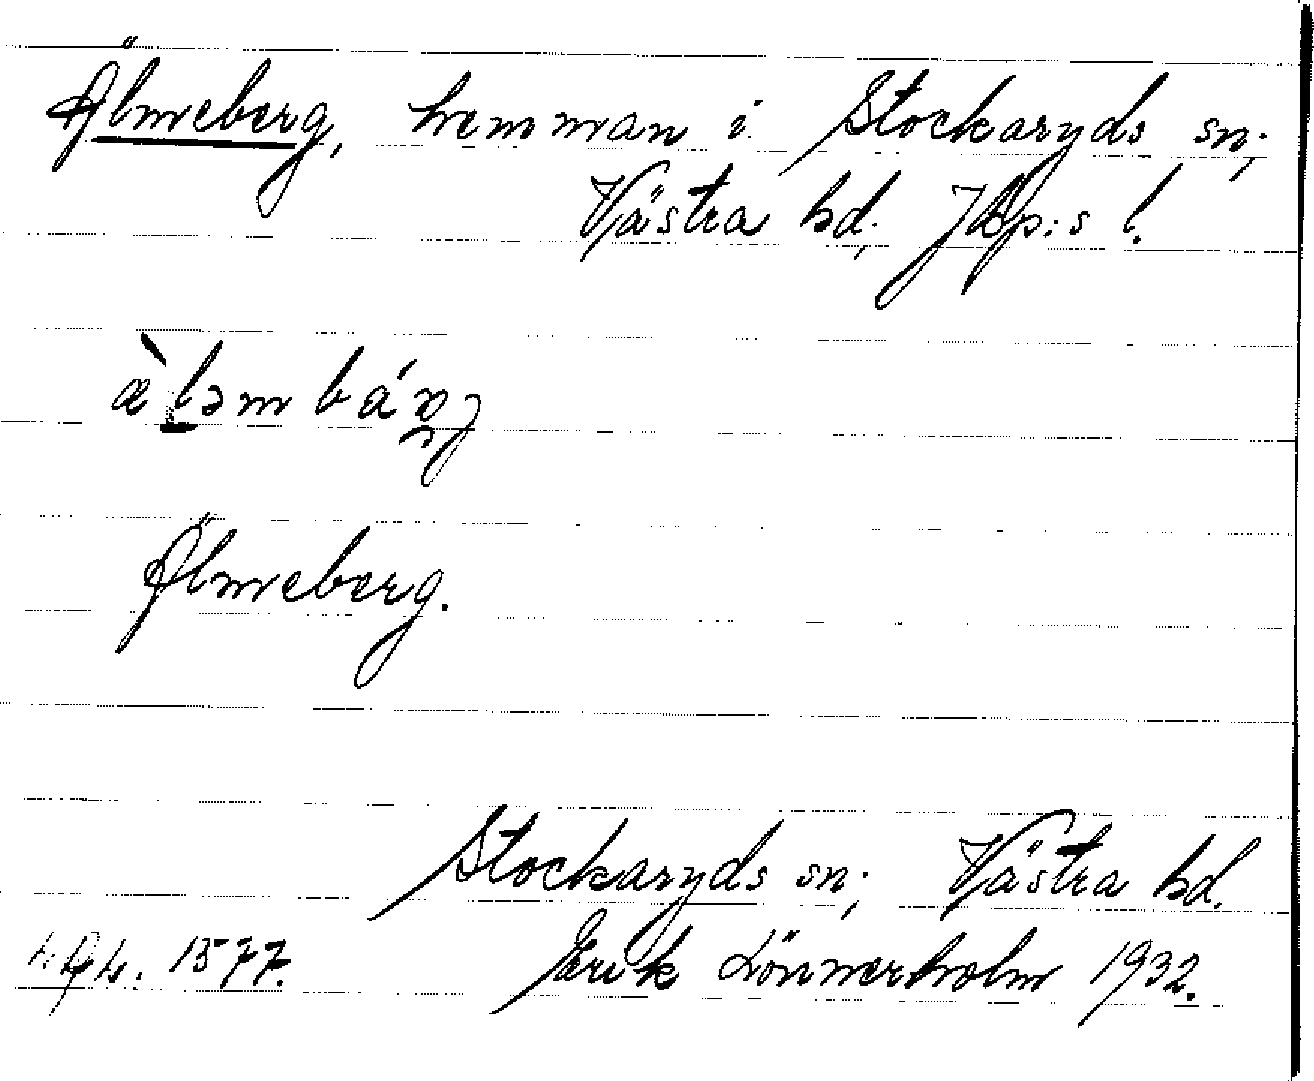 Älmeberg, hemman i Stockaryds sn;
Västra hd; Jkp:s l.
Älmeberg.
Stockaryds sn; Västra hd.
1577. Erik Lönnerholm 1932.